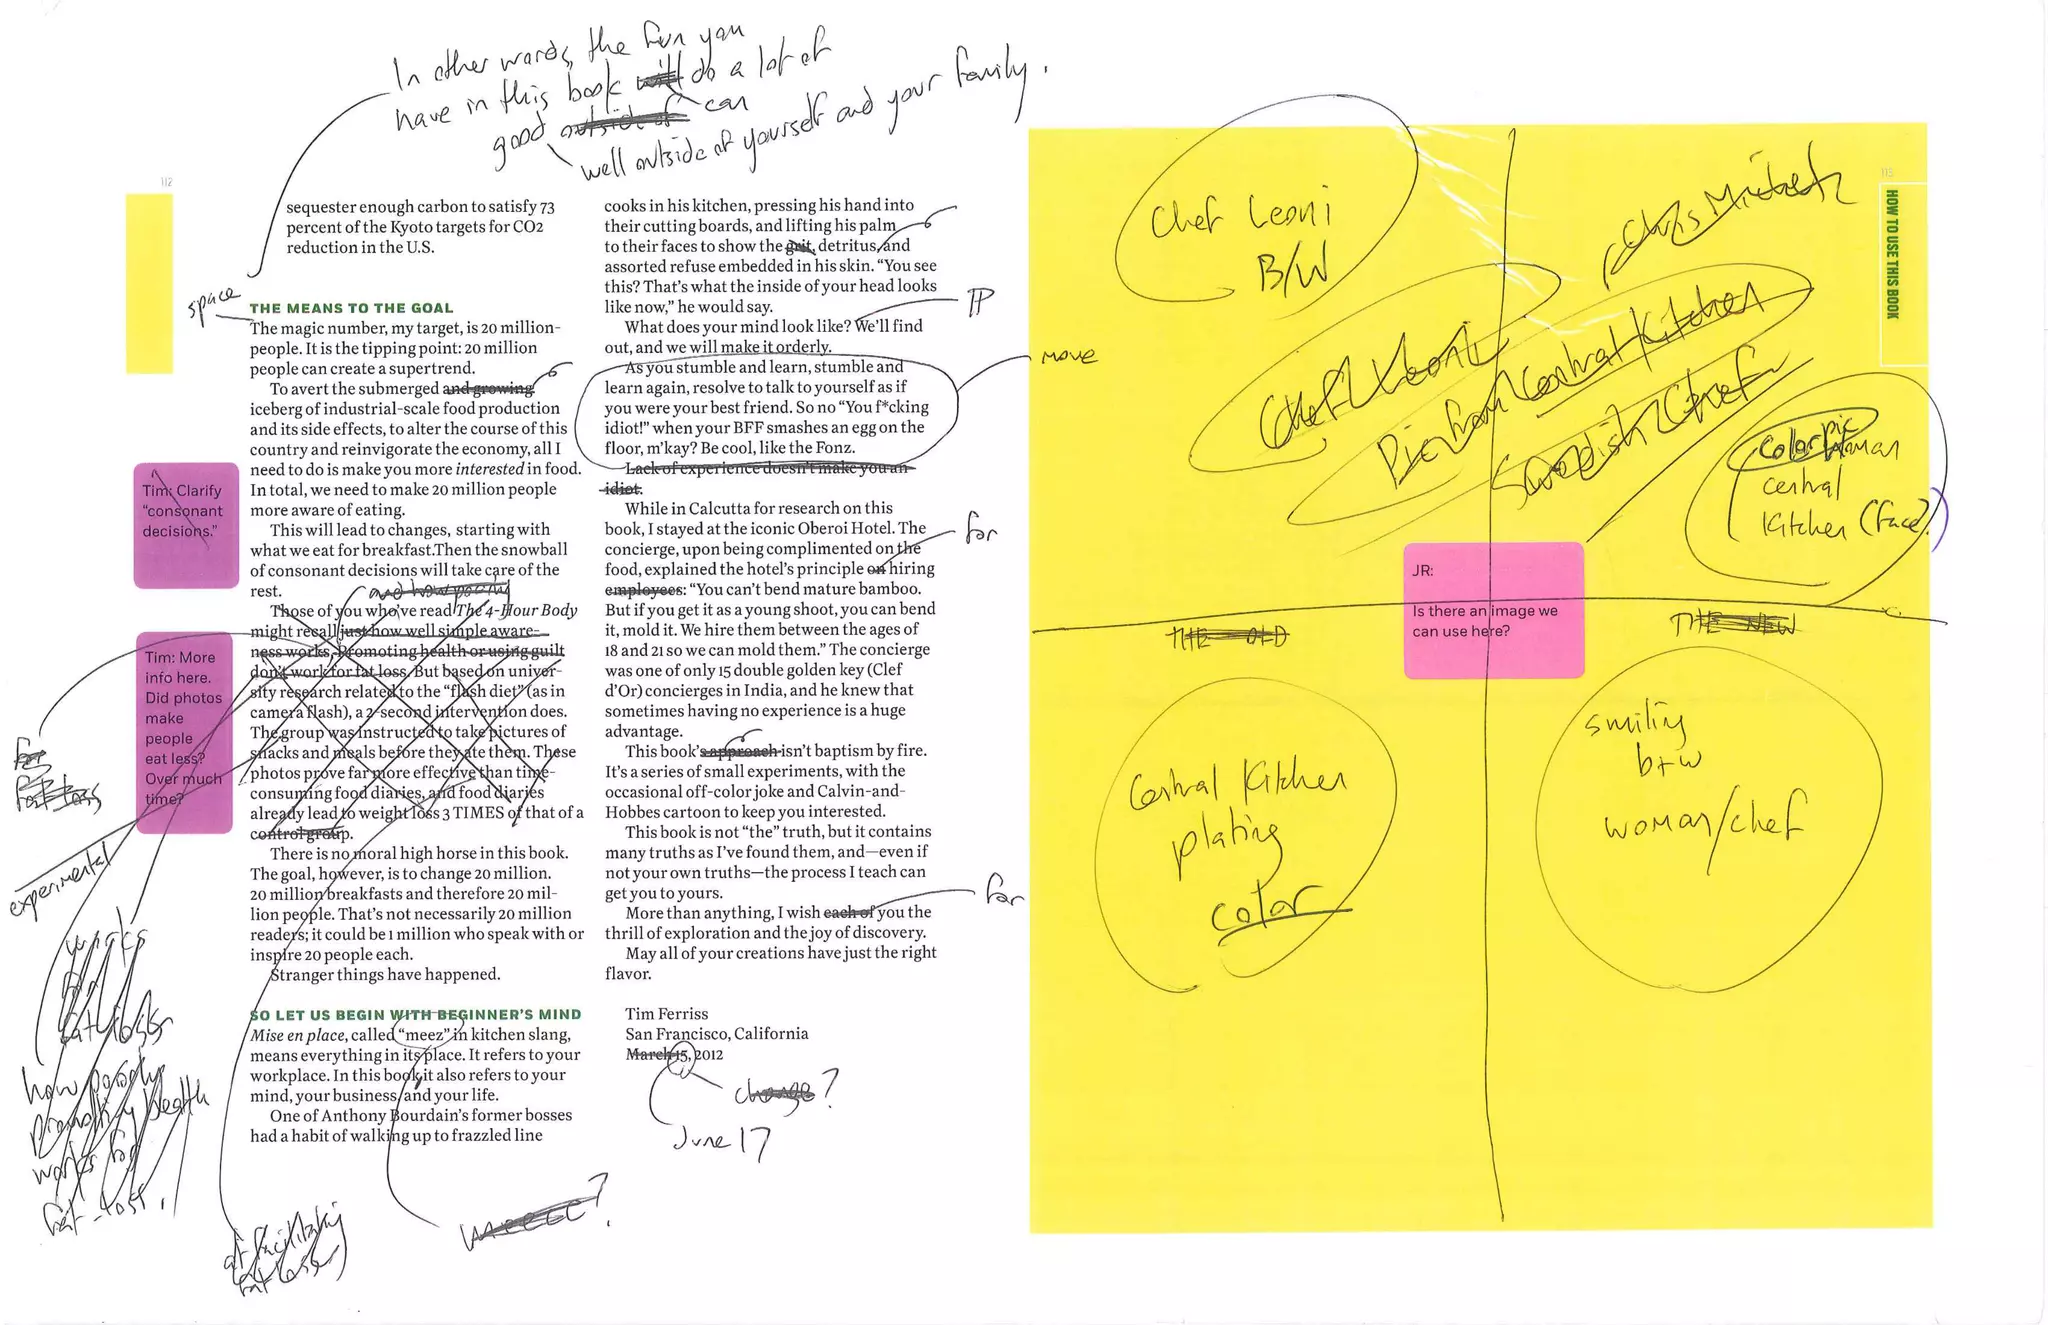 In other words, the fun you
have in this book will do a lot of
can
good outside of
well outside of yourself and your family.
112
sequester enough carbon to satisfy 73
percent of the Kyoto targets for CO2
reduction in the U.S.
space
THE MEANS TO THE GOAL
The magic number, my target, is 20 million-
people. It is the tipping point: 20 million
people can create a supertrend.
To avert the submerged and growing
iceberg of industrial-scale food production
and its side effects, to alter the course of this
country and reinvigorate the economy, all I
need to do is make you more interested in food.
In total, we need to make 20 million people
more aware of eating.
This will lead to changes, starting with
what we eat for breakfast.Then the snowball
of consonant decisions will take care of the
rest.
and how poorly
Those of you who've read The 4-Hour Body
might recall just how well simple aware-
ness works. Promoting health or using guilt
don't work for fat loss. But based on univer-
sity research related to the "flash diet" (as in
camera flash), a 2-second intervention does.
The group was instructed to take pictures of
snacks and meals before they ate them. These
photos prove far more effective than time-
consuming food diaries, and food diaries
already lead to weight loss 3 TIMES of that of a
control group.
There is no moral high horse in this book.
The goal, however, is to change 20 million.
20 million breakfasts and therefore 20 mil-
lion people. That's not necessarily 20 million
readers; it could be 1 million who speak with or
inspire 20 people each.
Stranger things have happened.
SO LET US BEGIN WITH BEGINNER'S MIND
Mise en place, called "meez" in kitchen slang,
means everything in its place. It refers to your
workplace. In this book it also refers to your
mind, your business, and your life.
One of Anthony Bourdain's former bosses
had a habit of walking up to frazzled line
Tim: Clarify
"consonant
decisions."
Tim: More
info here.
Did photos
make
people
eat less?
Over much
time?
for
fat-loss
experimental
works
for
fat-loss
how poorly
promoting health
works for
fat-loss.
at facilitating
fat loss
cooks in his kitchen, pressing his hand into
their cutting boards, and lifting his palm
to their faces to show the grit, detritus, and
assorted refuse embedded in his skin. "You see
this? That's what the inside of your head looks
like now," he would say.
What does your mind look like? We'll find
out, and we will make it orderly.
As you stumble and learn, stumble and
learn again, resolve to talk to yourself as if
you were your best friend. So no "You f*cking
idiot!" when your BFF smashes an egg on the
floor, m'kay? Be cool, like the Fonz.
move
Lack of experience doesn't make you an
idiot.
While in Calcutta for research on this
book, I stayed at the iconic Oberoi Hotel. The
concierge, upon being complimented on the
for
food, explained the hotel's principle on hiring
employees: "You can't bend mature bamboo.
But if you get it as a young shoot, you can bend
it, mold it. We hire them between the ages of
18 and 21 so we can mold them." The concierge
was one of only 15 double golden key (Clef
d'Or) concierges in India, and he knew that
sometimes having no experience is a huge
advantage.
This book's approach isn't baptism by fire.
It's a series of small experiments, with the
occasional off-color joke and Calvin-and-
Hobbes cartoon to keep you interested.
This book is not "the" truth, but it contains
many truths as I've found them, and—even if
not your own truths—the process I teach can
get you to yours.
for
More than anything, I wish each of you the
thrill of exploration and the joy of discovery.
May all of your creations have just the right
flavor.
Tim Ferriss
San Francisco, California
March 15, 2012
change?
June 17
115
HOW TO USE THIS BOOK
Chef Leoni
B/W
Chef Leoni
Pic from Central Kitchen
Swedish Chef
Color pic
woman
central
kitchen (face?)
JR:
Is there an image we
can use here?
THE OLD
THE NEW
Central Kitchen
plating
color
smiling
b+w
woman/chef